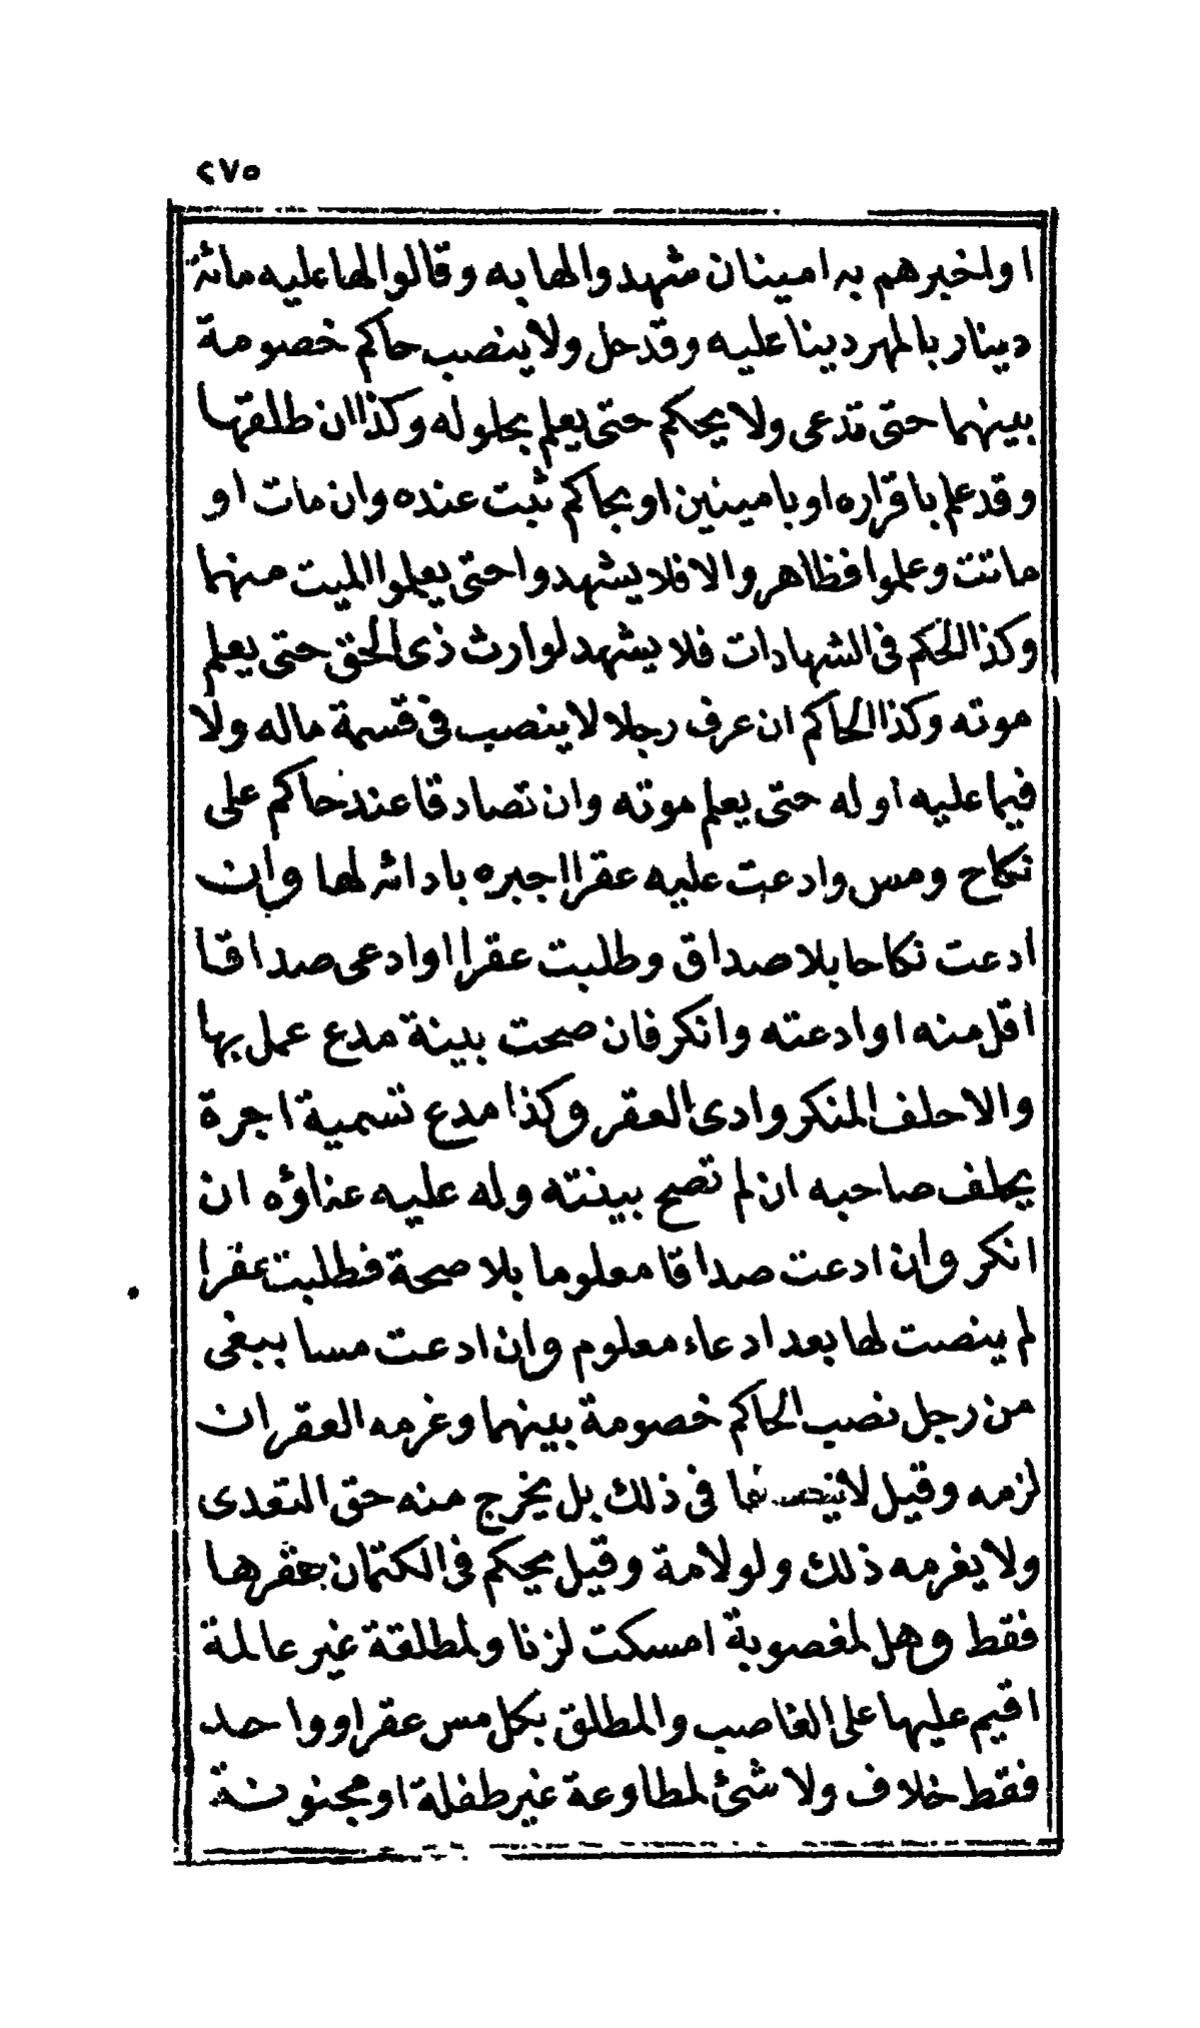 ٢٧٥
او اخبرهم به امينان شهدوا لها به وقالوا لها عليه مائة
دينار بالمهر دينا عليه وقد حل ولا ينصب حاكم خصومة
بينهما حتى تدعى ولا يحكم حتى يعلم بحلوله وكذا ان طلقتها
وقد علم باقراره او بامينين او بحاكم ثبت عنده وان مات او
ماتت وعلموا فظاهر والا فلا يشهدوا حتى يعلموا الميت منهما
وكذا الحكم فى الشهادات فلا يشهد لوارث ذى الحق حتى يعلم
موته وكذا الحاكم ان عرف رجلا لا ينصب فى قسمة ماله ولا
فيما عليه او له حتى يعلم موته وان تصادقا عند حاكم على
نكاح ومس وادعت عليه عقرا اجبره بادائه لها وان
ادعت نكاحا بلا صداق وطلبت عقرا او ادعى صداقا
اقل منه او ادعته وانكر فان صحت بينة مدع عمل بها
والا حلف المنكر وادى العقر وكذا مدع تسمية اجرة
يحلف صاحبه ان لم تصح بينته وله عليه عناؤه ان
انكر وان ادعت صداقا معلوما بلا صحة فطلبت عقرا
لم ينصت لها بعد ادعاء معلوم وان ادعت مسا ببغى
من رجل نصب الحاكم خصومة بينهما وغرمه العقر ان
لزمه وقيل لا فى ذلك بل يخرج منه حق التعدى
ولا يغرمه ذلك ولو لامة وقيل يحكم فى الكتمان بعقرها
فقط وهل لمغصوبة امسكت لزنا ولمطلقة غير عالمة
اقيم عليها على الغاصب والمطلق بكل مس عقر او واحد
فقط خلاف ولا شئ لمطاوعة غير طفلة او مجنونة